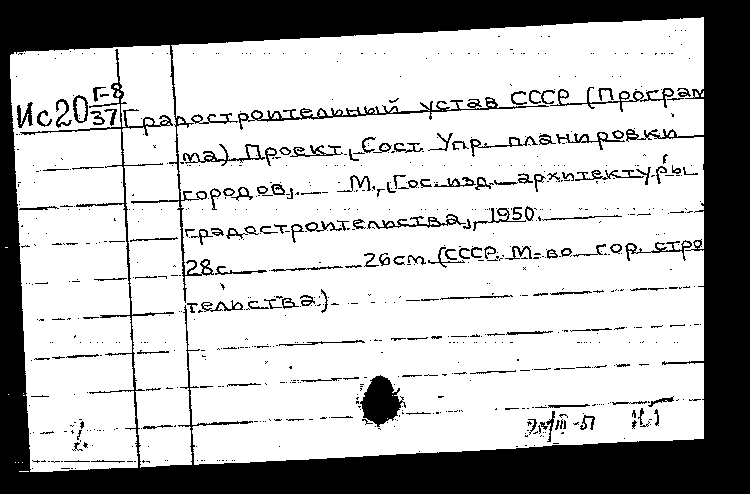 Г-8
Ис20 37 Градостроительный устав СССР (Програм
ма). Проект, [Сост. Упр. планировки
городов]. М., [Гос. изд. архитектуры
градостроительства], 1950.
28с. 26см. (СССР. М-во гор. стро
тельства).
2.
III-51